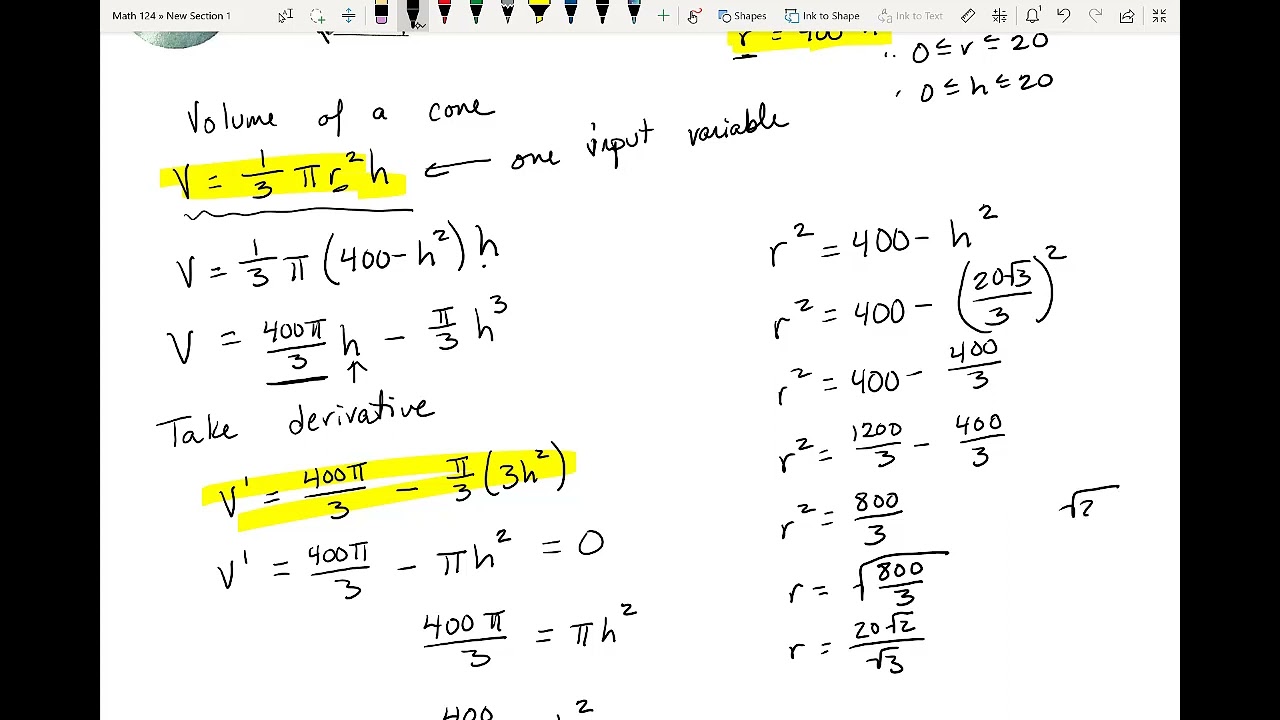 Math 124 » New Section 1
Shapes
Ink to Shape
Ink to Text
0 ≤ r ≤ 20
0 ≤ h ≤ 20
Volume of a cone
V = 1/3 π r² h ← one input variable
V = 1/3 π (400 - h²) h
V = 400π/3 h - π/3 h³
Take derivative
V' = 400π/3 - π/3 (3h²)
V' = 400π/3 - πh² = 0
400π/3 = πh²
400
r² = 400 - h²
r² = 400 - (20√3/3)²
r² = 400 - 400/3
r² = 1200/3 - 400/3
r² = 800/3
√2
r = √(800/3)
r = 20√2/√3